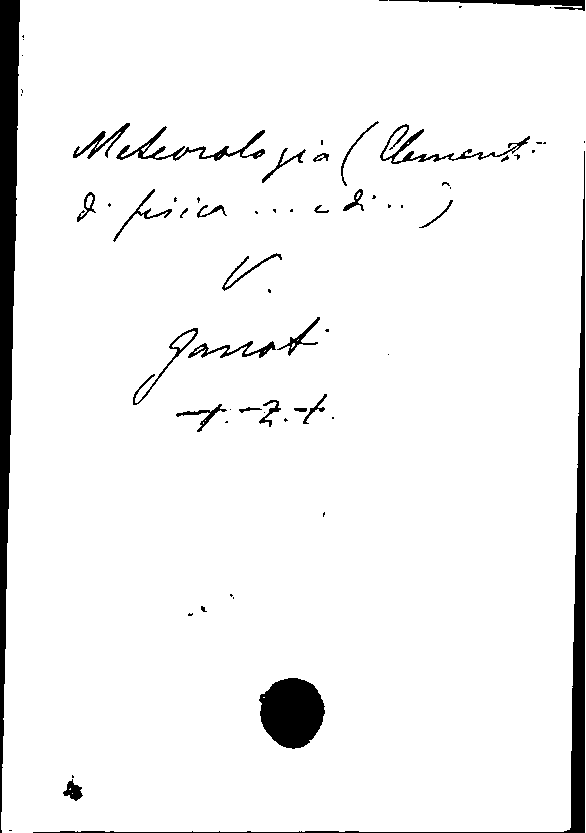 Meteorologia (Elementi
di fisica ... e di ...)
V.
Ganot